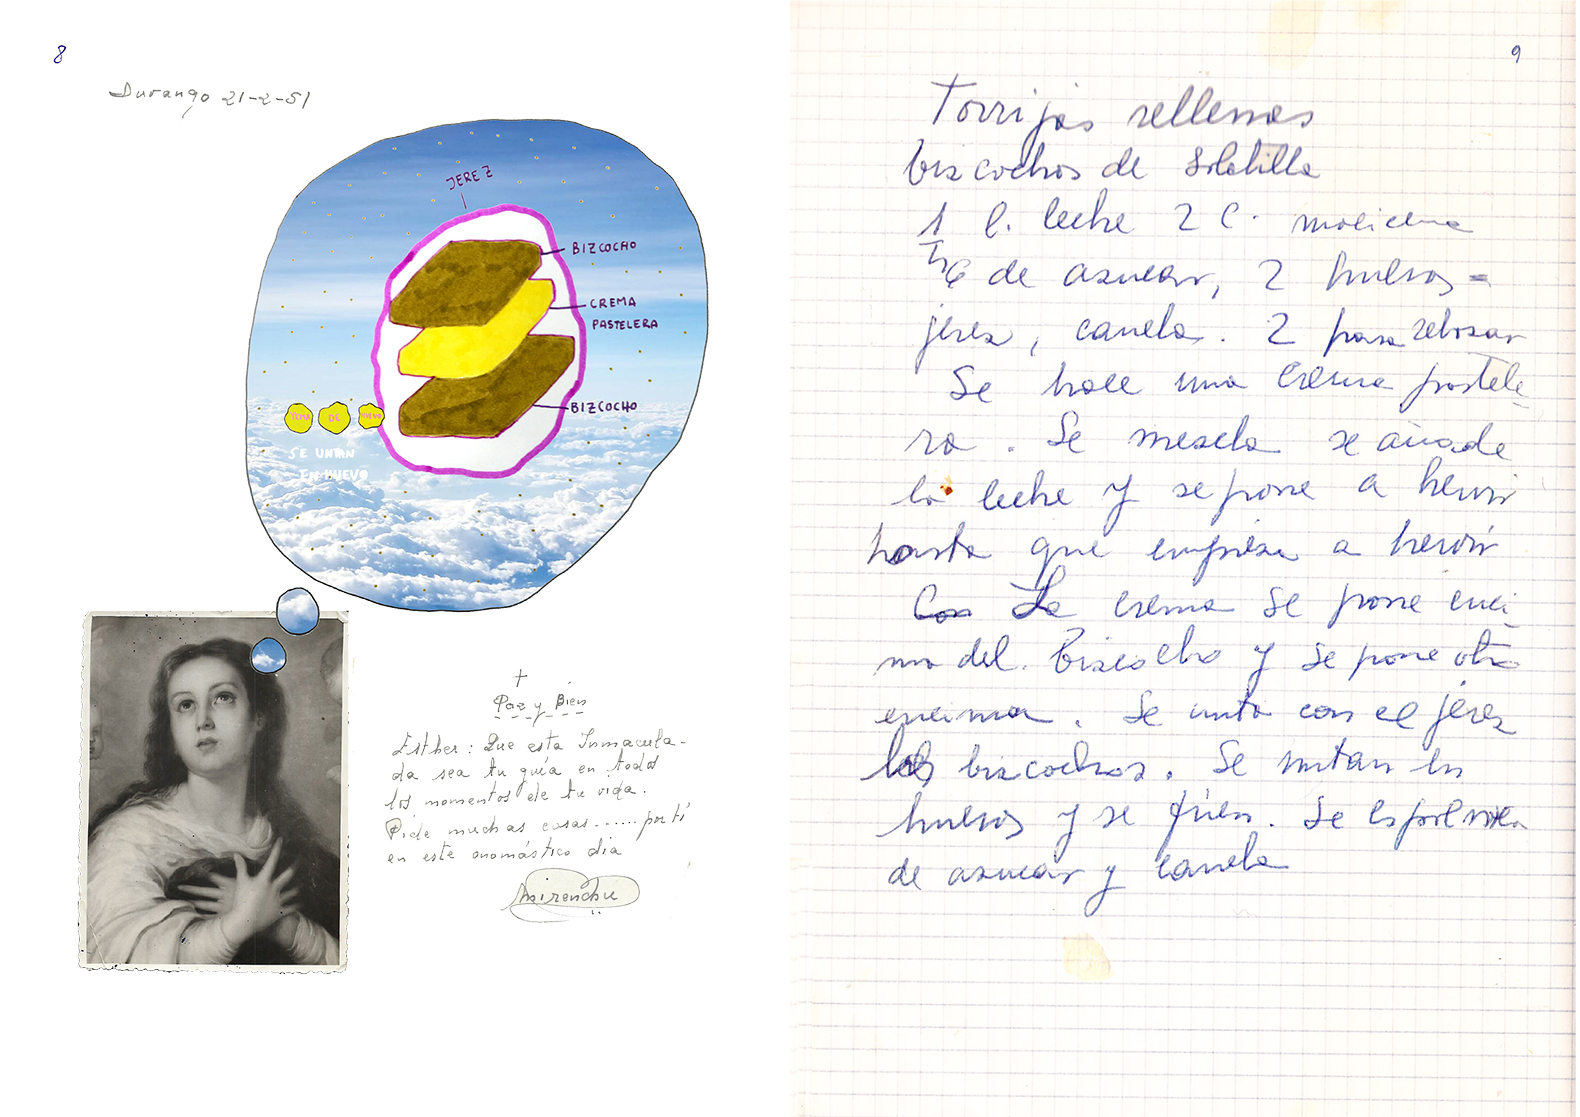 8
Durango 21-2-51
JEREZ
BIZCOCHO
CREMA
PASTELERA
BIZCOCHO
YEMA DE HUEVO
SE UNTAN
EN HUEVO
Paz y Bien
Esther: Que esta Inmacula-
da sea tu guía en todos
los momentos de tu vida.
Pide muchas cosas......por ti
en este onomástico dia
Mirenchu
9
Torrijas rellenas
bizcochos de Soletilla
1 l. leche 2 C. maicena
de azucar, 2 huevos =
jerez, canela. 2 para rebozar
Se hace una crema pastele-
ra. Se mezcla se añade
la leche y se pone a hervir
hasta que empieza a hervir
La crema se pone enci-
ma del Bizcocho y se pone otro
encima. Se unta con el jerez
los bizcochos. Se untan en
huevos y se frien. Se espolvorea
de azucar y canela